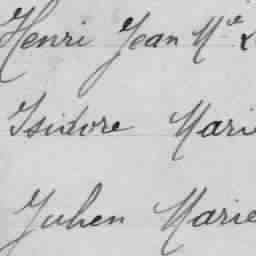 Henri Jean Mie
Isidore Marie
Julien Marie